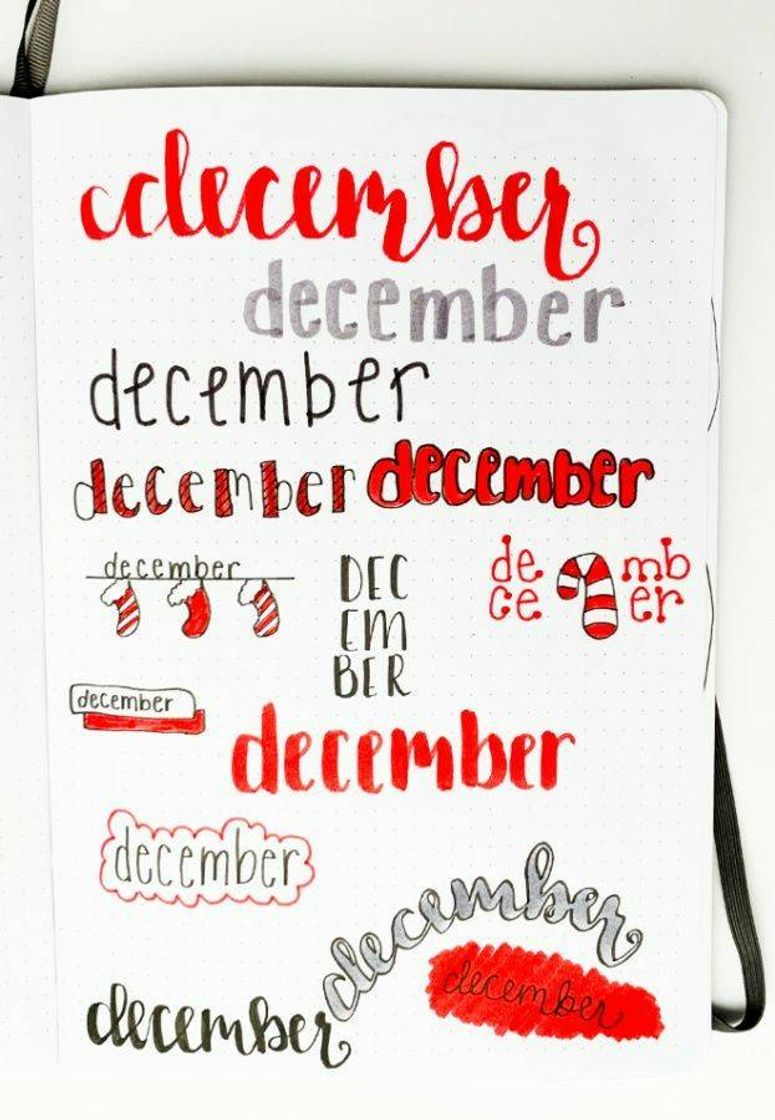 december
december
december
december december
december
DEC
EM
BER
de mb
ce er
december
december
december
december
december
december